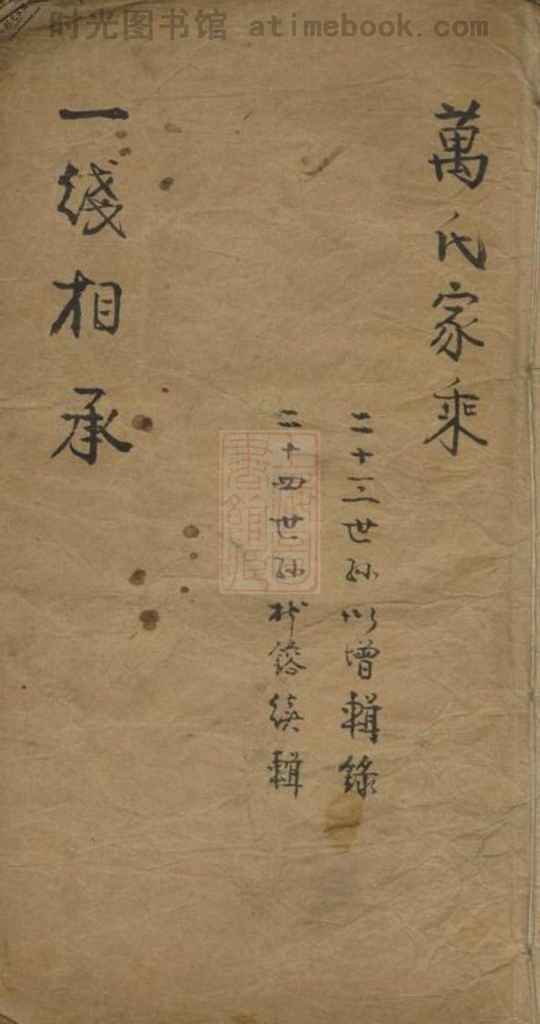 时光图书馆 · atimebook.com
萬氏家乘
二十三世孙以增輯錄
二十四世孙續輯
一綫相承